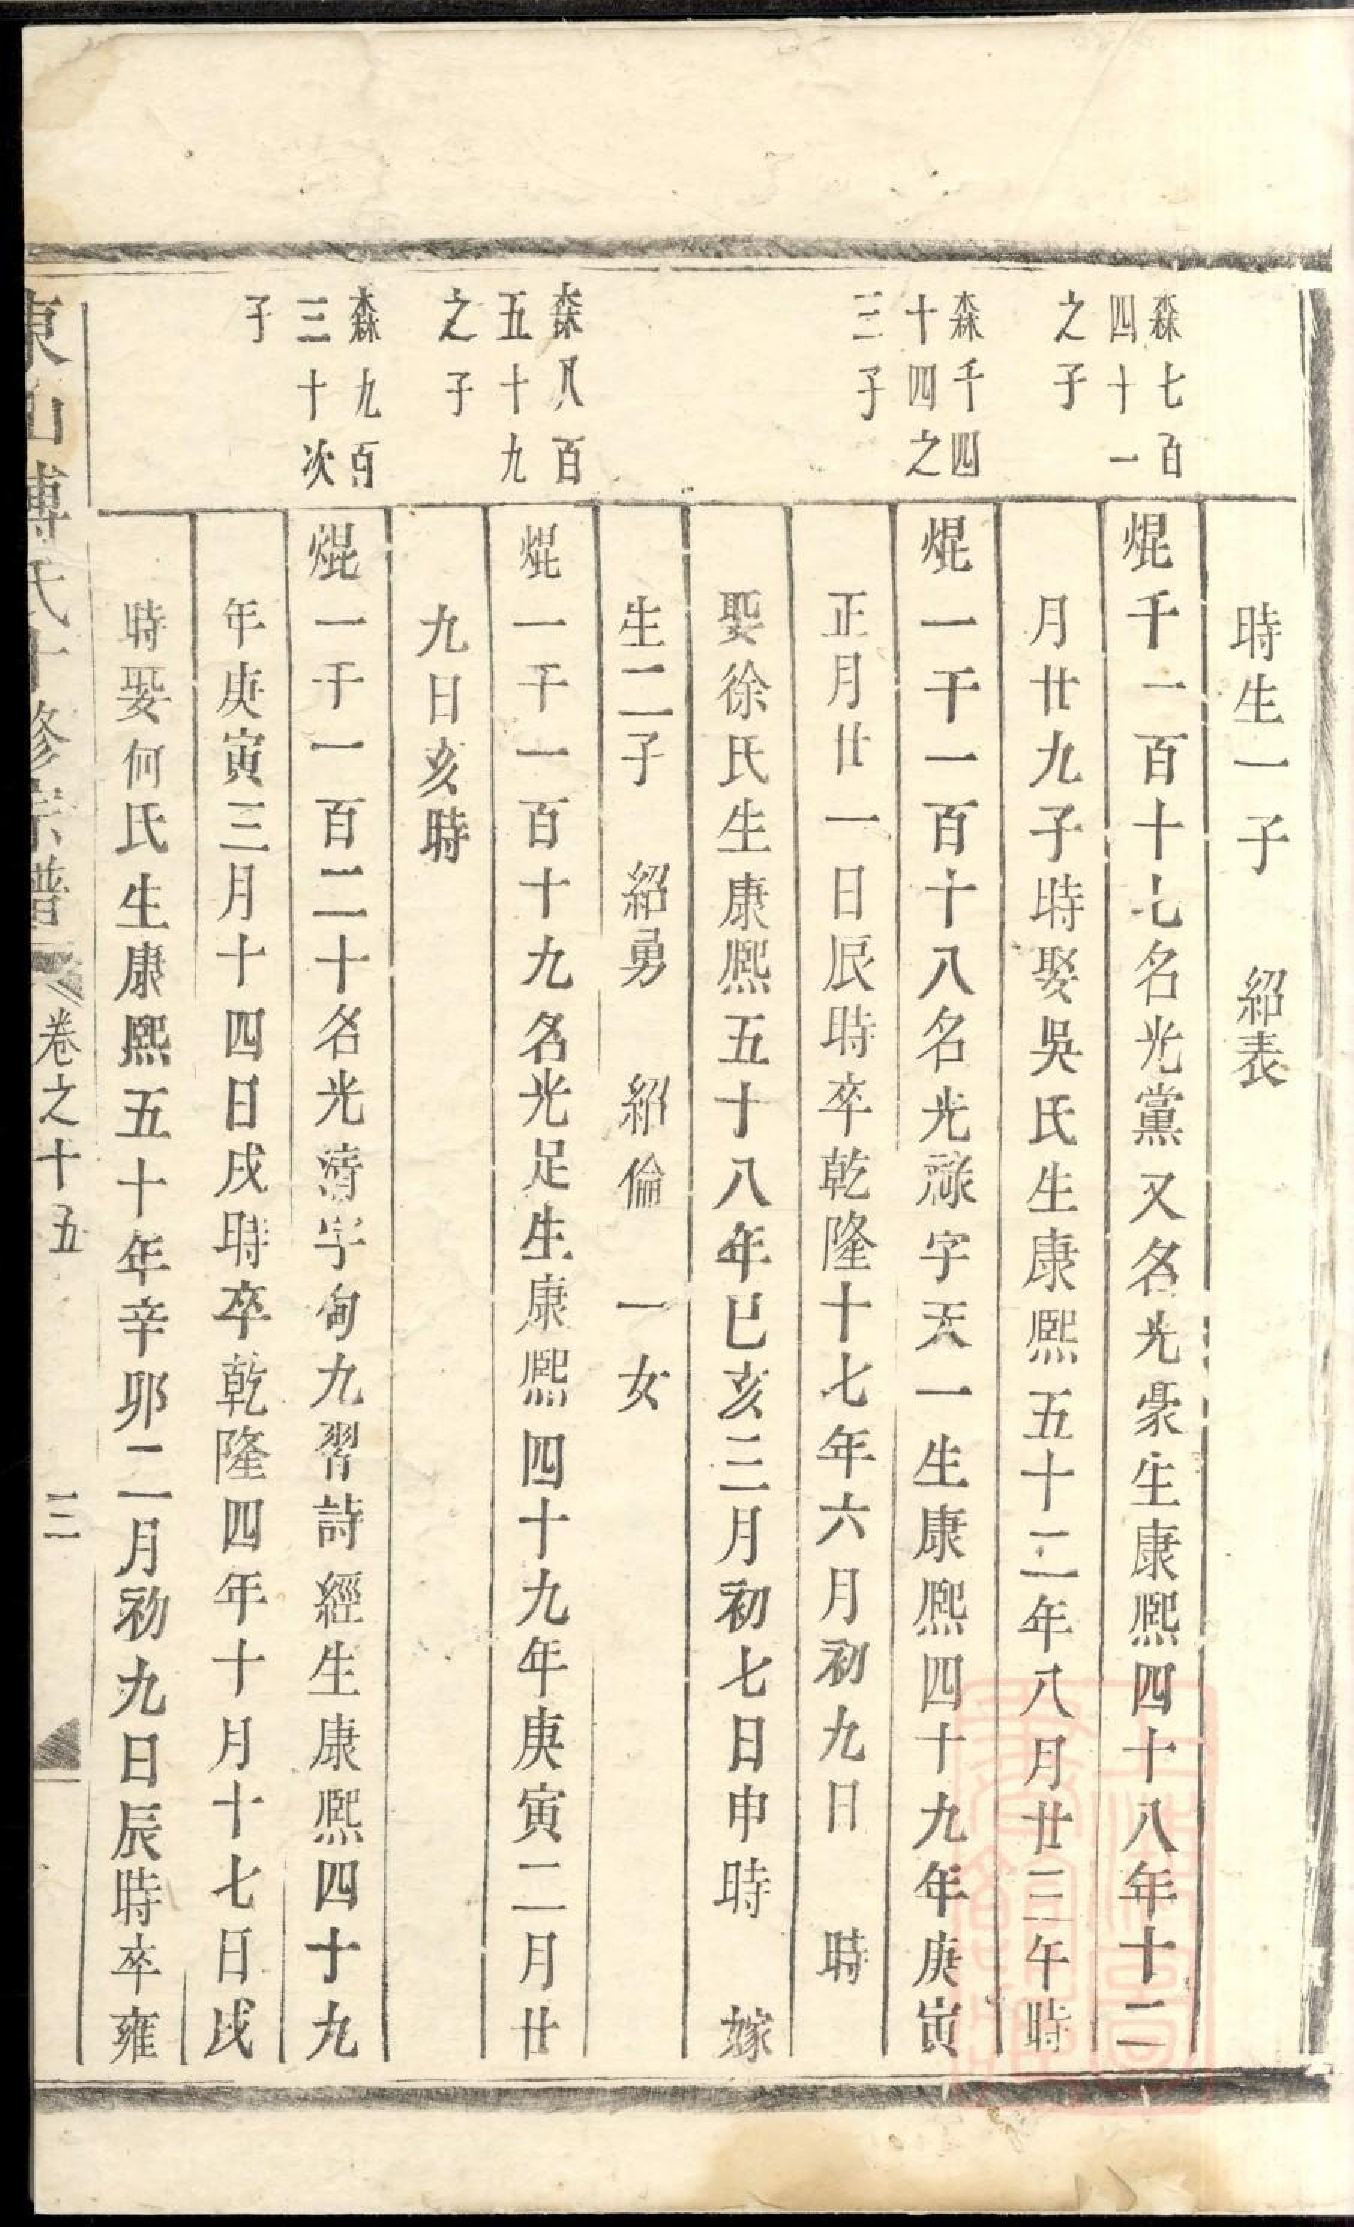 時生一子 紹表
森七百
四十一
之子
焜千一百十七名光黨又名光豪生康熙四十八年十二
月廿九子時娶吳氏生康熙五十二年八月廿三午時
森千四
十四之
三子
焜一千一百十八名光祿字天一生康熙四十九年庚寅
正月廿一日辰時卒乾隆十七年六月初九日 時
娶徐氏生康熙五十八年巳亥三月初七日申時 嫁
生二子 紹勇 紹倫 一女
森八百
五十九
之子
焜一千一百十九名光足生康熙四十九年庚寅二月廿
九日亥時
森九百
三十次
子
焜一千一百二十名光濟字甸九習詩經生康熙四十九
年庚寅三月十四日戌時卒乾隆四年十月十七日戌
時娶何氏生康熙五十年辛卯二月初九日辰時卒雍
東山傅氏十修宗譜 卷之十五 三